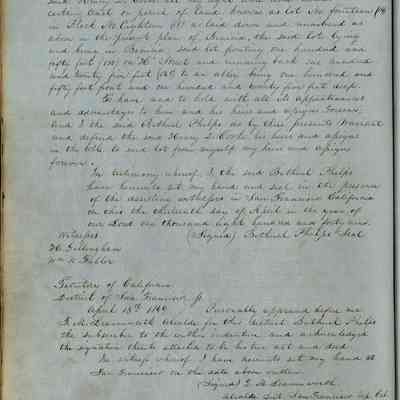 certain Lot or parcel of land known as Lot No fourteen (14
in Block No Eighteen (18) as laid down and numbered as
above in the present plan of Benicia, the said lot lying
and being in Benicia said lot fronting one hundred and
fifty feet (150) on H Street and running back one hundred
and twenty five feet (125) to an alley being one hundred and
fifty feet front and one hundred and twenty five feet deep.
To have and to hold with all its appurtenances
and advantages to him and his heirs and assigns forever,
And I the said Bethuel Phelps do by these presents Warrant
and defend the said Henry D. Cooke his heirs and assigns
in the title to said lot from myself my heirs and assigns
forever.
In testimony whereof I the said Bethuel Phelps
have hereunto set my hand and seal in the presence
of the assisting witnesses in San Francisco California
on this the thirteenth day of April in the year of
our Lord one thousand eight hundred and forty nine.
Witnesses (Signed) Bethuel Phelps Seal
Gillingham
Wm R. Fuller
Territory of California
District of San Francisco ss.
April 13th 1849 Personally appeared before me
T. M. Leavenworth Alcalde for this district Bethuel Phelps
the subscriber to the within indenture and acknowledged
the signature thereto attached to be his true act and deed
In witness whereof I have hereunto set my hand at
San Francisco on the date above written
(Signed) T. M. Leavenworth
Alcalde Dist. San Francisco Up. Cal.